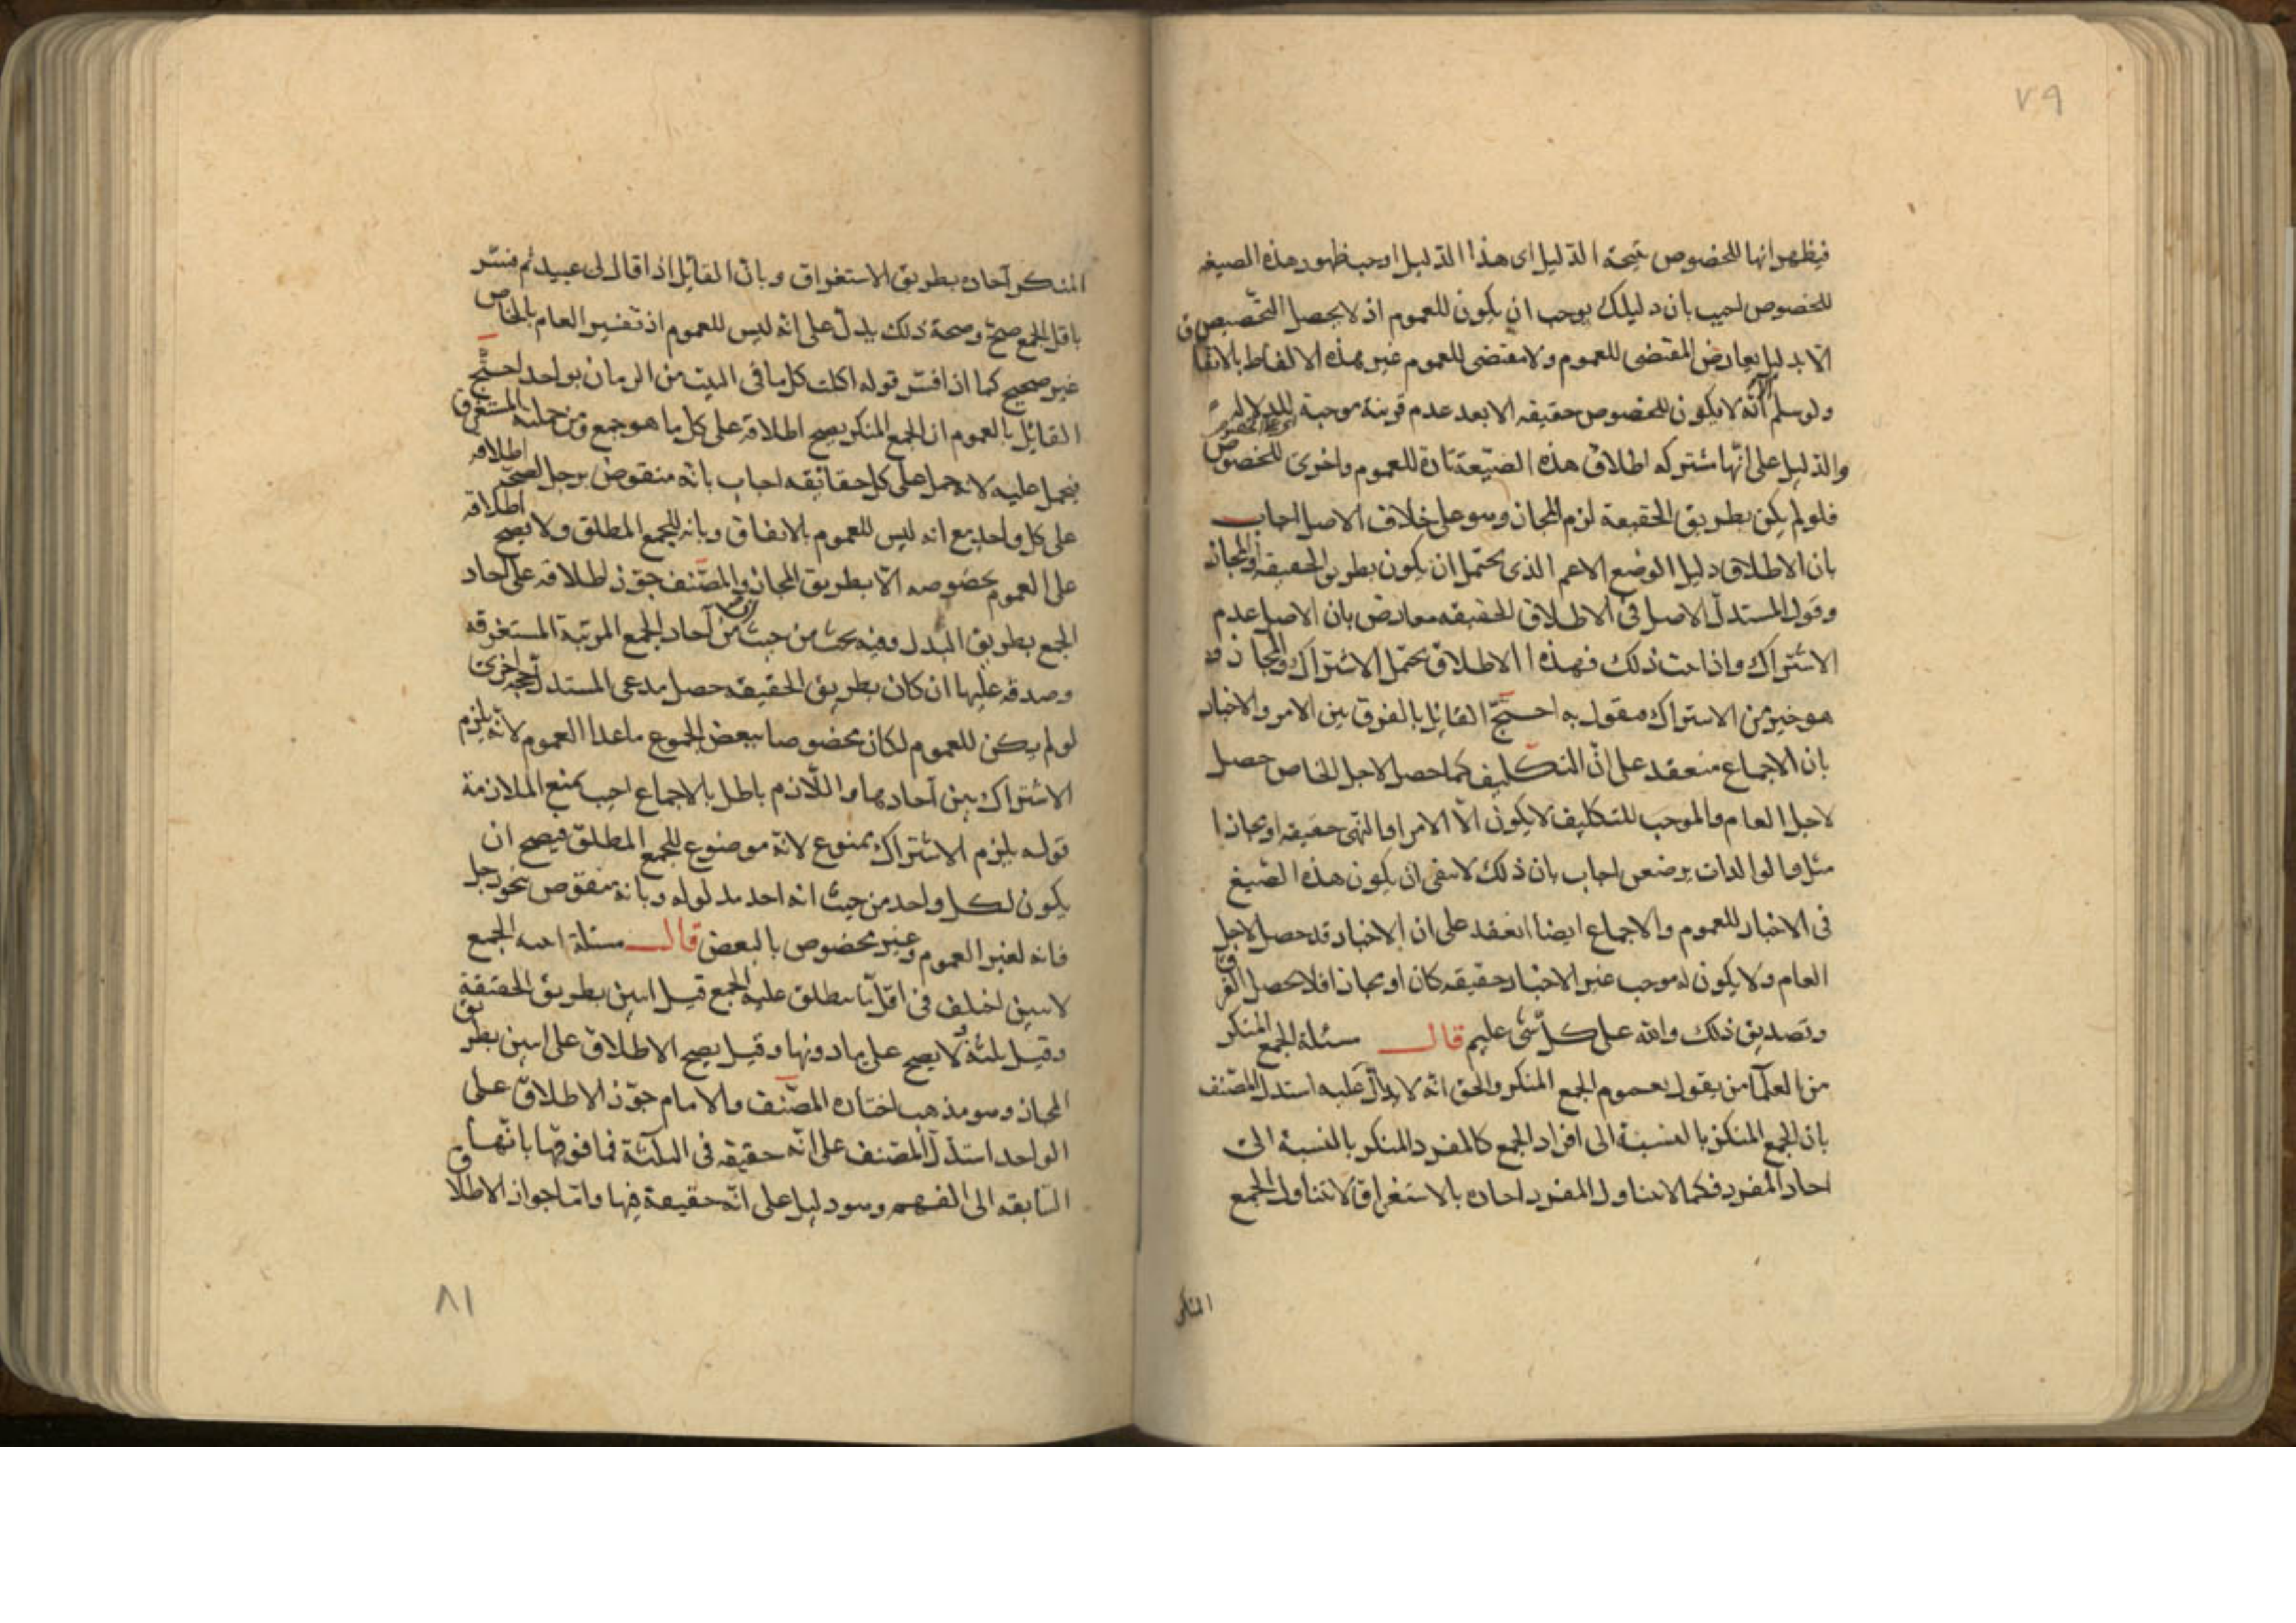 ٧٩
فيظهر انها للخصوص نتيجة الدليل اى هذا الدليل اوجب ظهور هذه الصيغه
للخصوص اجيب بان دليلك يوجب ان يكون للعموم اذ لا يحصل التخصيص
الا بدليل يعارض المقتضى للعموم ولا مقتضى للعموم غير هذه الالفاظ بالاتفاق
ولو سلم انه لا يكون للخصوص حقيقه الا بعد عدم قرينة موجبة للدلاله
والدليل على انها مشتركه اطلاق هذه الصيغة تارة للعموم واخرى للخصوص
فلو لم يكن بطريق الحقيقة لزم المجاز وهو على خلاف الاصل اجاب
بان الاطلاق دليل الوضع الاعم الذى يحتمل ان يكون بطريق الحقيقه او المجاز
وقول المستدل الاصل فى الاطلاق الحقيقه معارض بان الاصل عدم
الاشتراك واذا ثبت ذلك فهذا الاطلاق يحتمل الاشتراك والمجاز و
هو خير من الاشتراك فيقول به احتج القائل بالفرق بين الامر والاخبار
بان الاجماع منعقد على ان التكليف كما حصل لاجل الخاص حصل
لاجل العام والموجب للتكليف لا يكون الا الامر او النهى حقيقه او مجازا
مثل والوالدات يرضعن اجاب بان ذلك لا ينفى ان يكون هذه الصيغ
فى الاخبار للعموم والاجماع ايضا انعقد على ان الاخبار قد حصل لاجل
العام ولا يكون له موجب غير الاخبار حقيقه كان او مجازا فلا يحصل الفرق
وتصديق ذلك والله على كل شى عليم قال مسئلة الجمع المنكر
من العلما من يقول بعموم الجمع المنكر والحق انه لا يدل عليه استدل المصنف
بان الجمع المنكر بالنسبة الى افراد الجمع كالمفرد المنكر بالنسبة الى
احاد المفرد فكما لا يتناول المفرد احاده بالاستغراق لا يتناول الجمع
المنكر
المنكر آحاده بطريق الاستغراق وبان القائل اذا قال لى عبيد ثم فسر
باقل الجمع صح وصحة ذلك يدل على انه ليس للعموم اذ تفسير العام بالخاص
غير صحيح كما اذا فسر قوله اكلت كل ما فى البيت من الرمان بواحد احتج
القائل بالعموم ان الجمع المنكر يصح اطلاقه على كل ما هو جمع ومن جملته المستغرق
فيحمل عليه لانه حمل على كل حقائقه اجاب بانه منقوض برجل لصحة اطلاقه
على كل واحد مع انه ليس للعموم بالاتفاق وبانه للجمع المطلق ولا يصح اطلاقه
على العموم بخصوصه الا بطريق المجاز والمصنف جوز اطلاقه على آحاد
الجمع بطريق البدل وفيه بحث من حيث ان من آحاد الجمع المرتبة المستغرقه
وصدقه عليها ان كان بطريق الحقيقه حصل مدعى المستدل حجه اخرى
لو لم يكن للعموم لكان مخصوصا ببعض الجموع ماعدا العموم لانه يلزم
الاشتراك بين آحادها واللازم باطل بالاجماع اجيب بمنع الملازمة
قوله يلزم الاشتراك ممنوع لانه موضوع للجمع المطلق فيصح ان
يكون لكل واحد من حيث انه احد مدلوله وبانه منقوض بنحو رجل
فانه لغير العموم وغير مخصوص بالبعض قال مسئلة ابنيه الجمع
لاثنين اختلف فى اقل ما يطلق عليه الجمع قيل اثنين بطريق الحقيقة
وقيل ثلثة ولا يصح على ما دونها وقيل يصح الاطلاق على اثنين بطريق
المجاز وهو مذهب اختاره المصنف والامام جوز الاطلاق على
الواحد استدل المصنف على انه حقيقه فى الثلثة فما فوقها بانها
السابقه الى الفهم وهو دليل على انه حقيقة فيها واما جواز الاطلاق
٨١